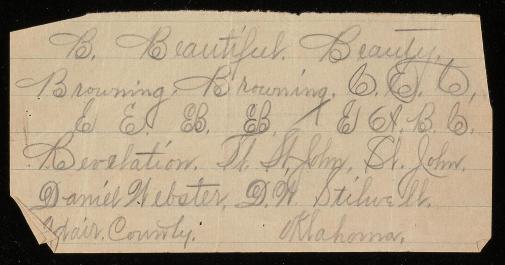 B. Beautiful. Beauty.,
Browning. Browning. C. E. C,
E E. EB. EB. E A. B. C.
Revelation. St. John, St. John.
Daniel Webster, D.W. Stilwell.
Adair. County. Oklahoma.